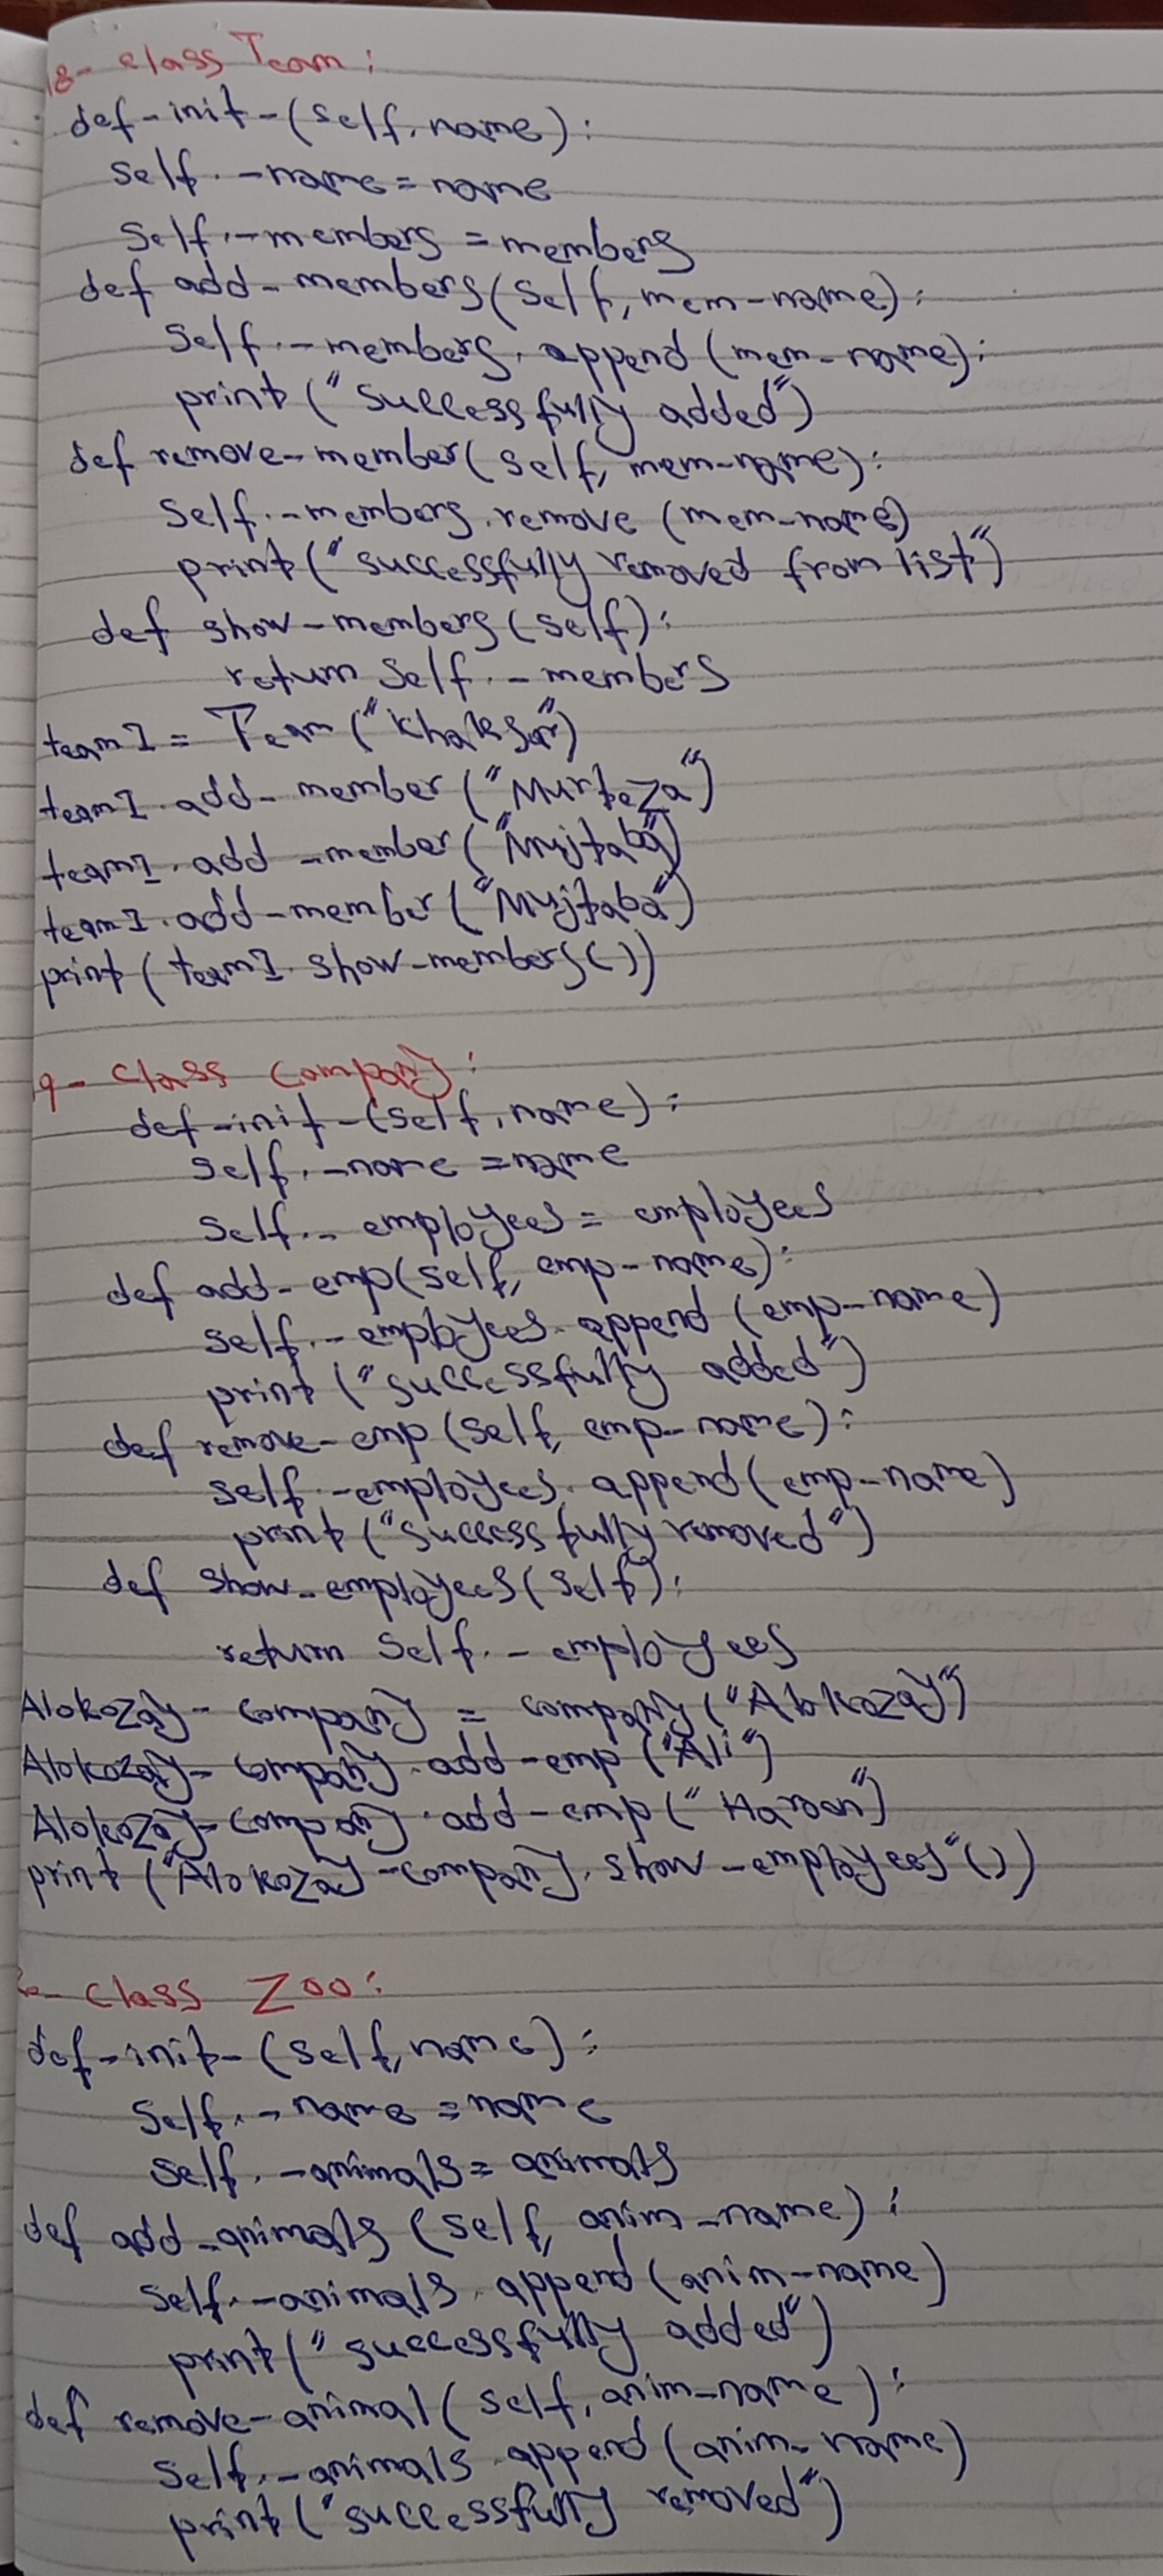 18- class Team:
def-init-(self, name):
self.-name = name
self.-members = members
def add-members(self, mem-name):
self.-members.append(mem-name):
print("successfully added")
def remove-member(self, mem-name):
self.-members.remove(mem-name)
print("successfully removed from list")
def show-members(self):
return self.-members
team1 = Team("khaksar")
team1.add-member("Murteza")
team1.add-member("Mujtaba")
team1.add-member("Mujtaba")
print(team1.show-members())
19- class Company:
def-init-(self, name):
self.-name = name
self.-employees = employees
def add-emp(self, emp-name):
self.-employees.append(emp-name)
print("successfully added")
def remove-emp(self, emp-name):
self.-employees.append(emp-name)
print("successfully removed")
def show-employees(self):
return self.-employees
Alokozay-company = company("Alokozay")
Alokozay-company.add-emp("Ali")
Alokozay-company.add-emp("Haroon")
print("Alokozay-company.show-employees"())
class Zoo:
def-init-(self, name):
self.-name = name
self.-animals = animals
def add-animals(self, anim-name):
self.-animals.append(anim-name)
print("successfully added")
def remove-animal(self, anim-name):
self.-animals.append(anim-name)
print("successfully removed")